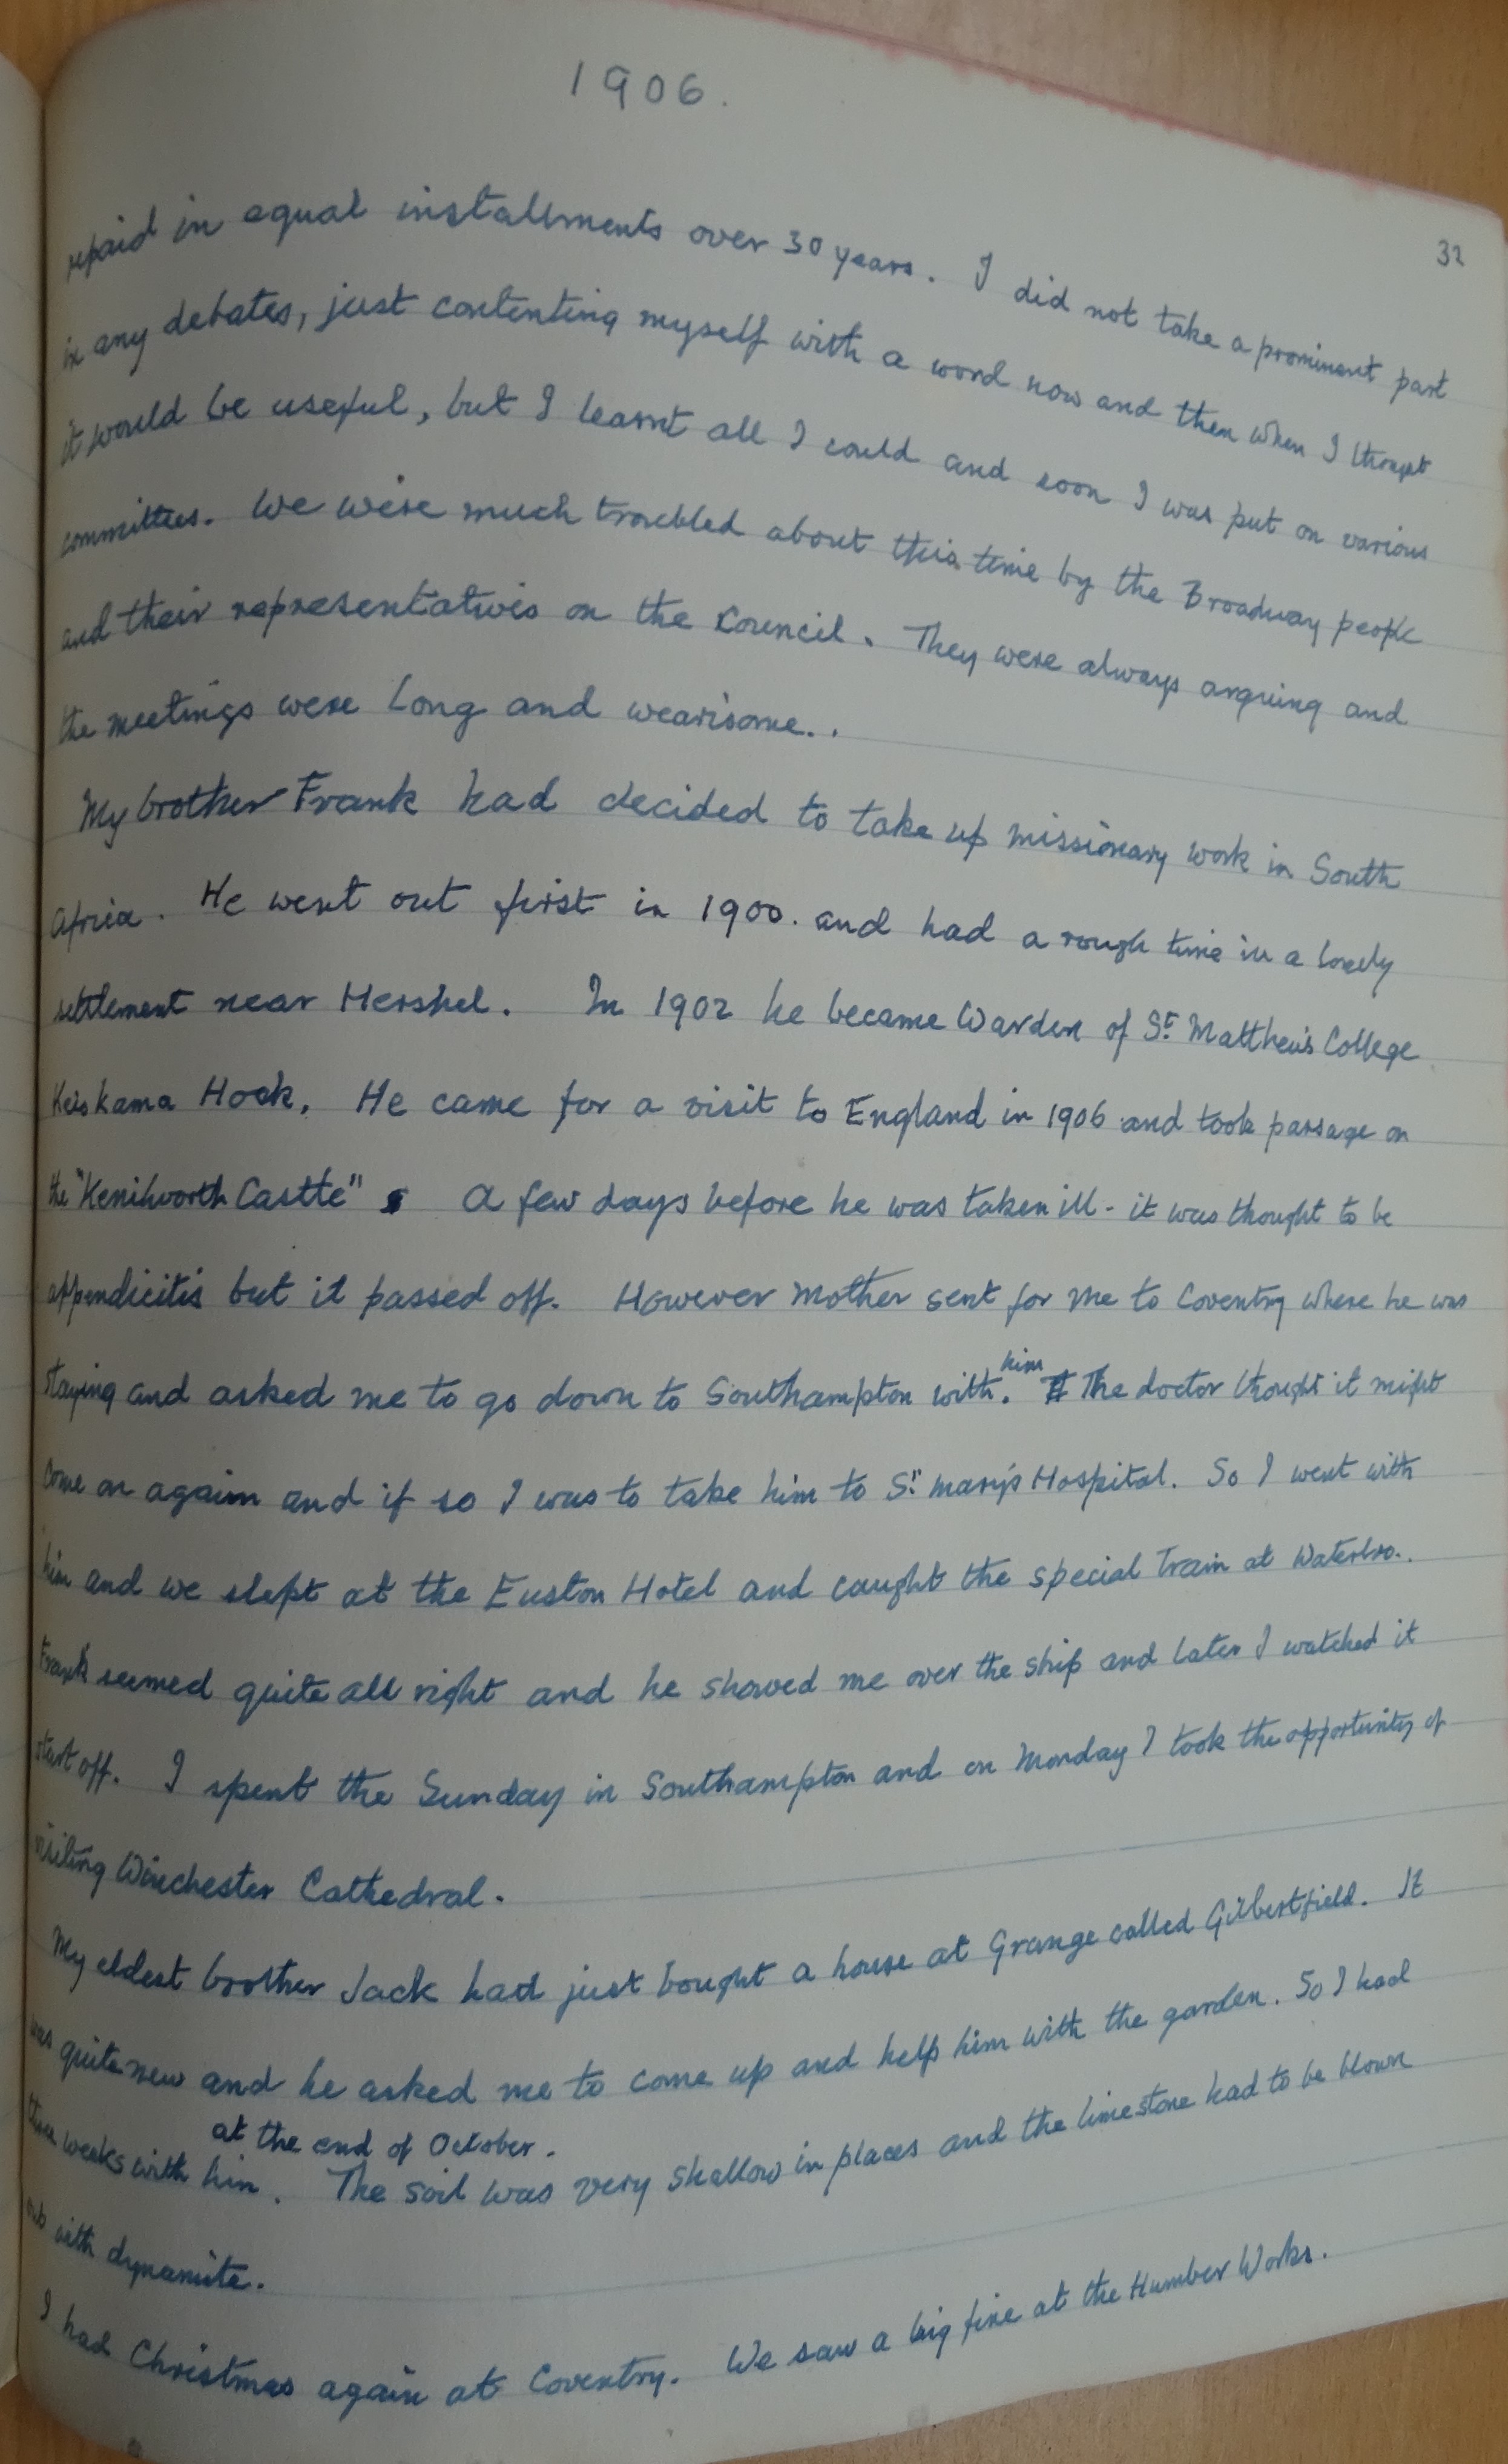 1906.
32
repaid in equal installments over 30 years. I did not take a prominent part
in any debates, just contenting myself with a word now and then when I thought
it would be useful, but I learnt all I could and soon I was put on various
committees. We were much troubled about this time by the Broadway people
and their representatives on the Council. They were always arguing and
the meetings were long and wearisome..
My brother Frank had decided to take up missionary work in South
Africa. He went out first in 1900. and had a rough time in a lonely
settlement near Hershel. In 1902 he became Warden of St Matthew's College
Keiskama Hoek. He came for a visit to England in 1906 and took passage on
the "Kenilworth Castle" A few days before he was taken ill - it was thought to be
appendicitis but it passed off. However Mother sent for me to Coventry where he was
staying and asked me to go down to Southampton with him. The doctor thought it might
come on again and if so I was to take him to St Mary's Hospital. So I went with
him and we slept at the Euston Hotel and caught the special Train at Waterloo..
Frank seemed quite all right and he showed me over the ship and later I watched it
start off. I spent the Sunday in Southampton and on Monday I took the opportunity of
visiting Winchester Cathedral.
My eldest brother Jack had just bought a house at Grange called Gilbertfield. It
was quite new and he asked me to come up and help him with the garden. So I had
at the end of October.
three weeks with him. The soil was very shallow in places and the limestone had to be blown
out with dynamite.
I had Christmas again at Coventry. We saw a big fire at the Humber Works.